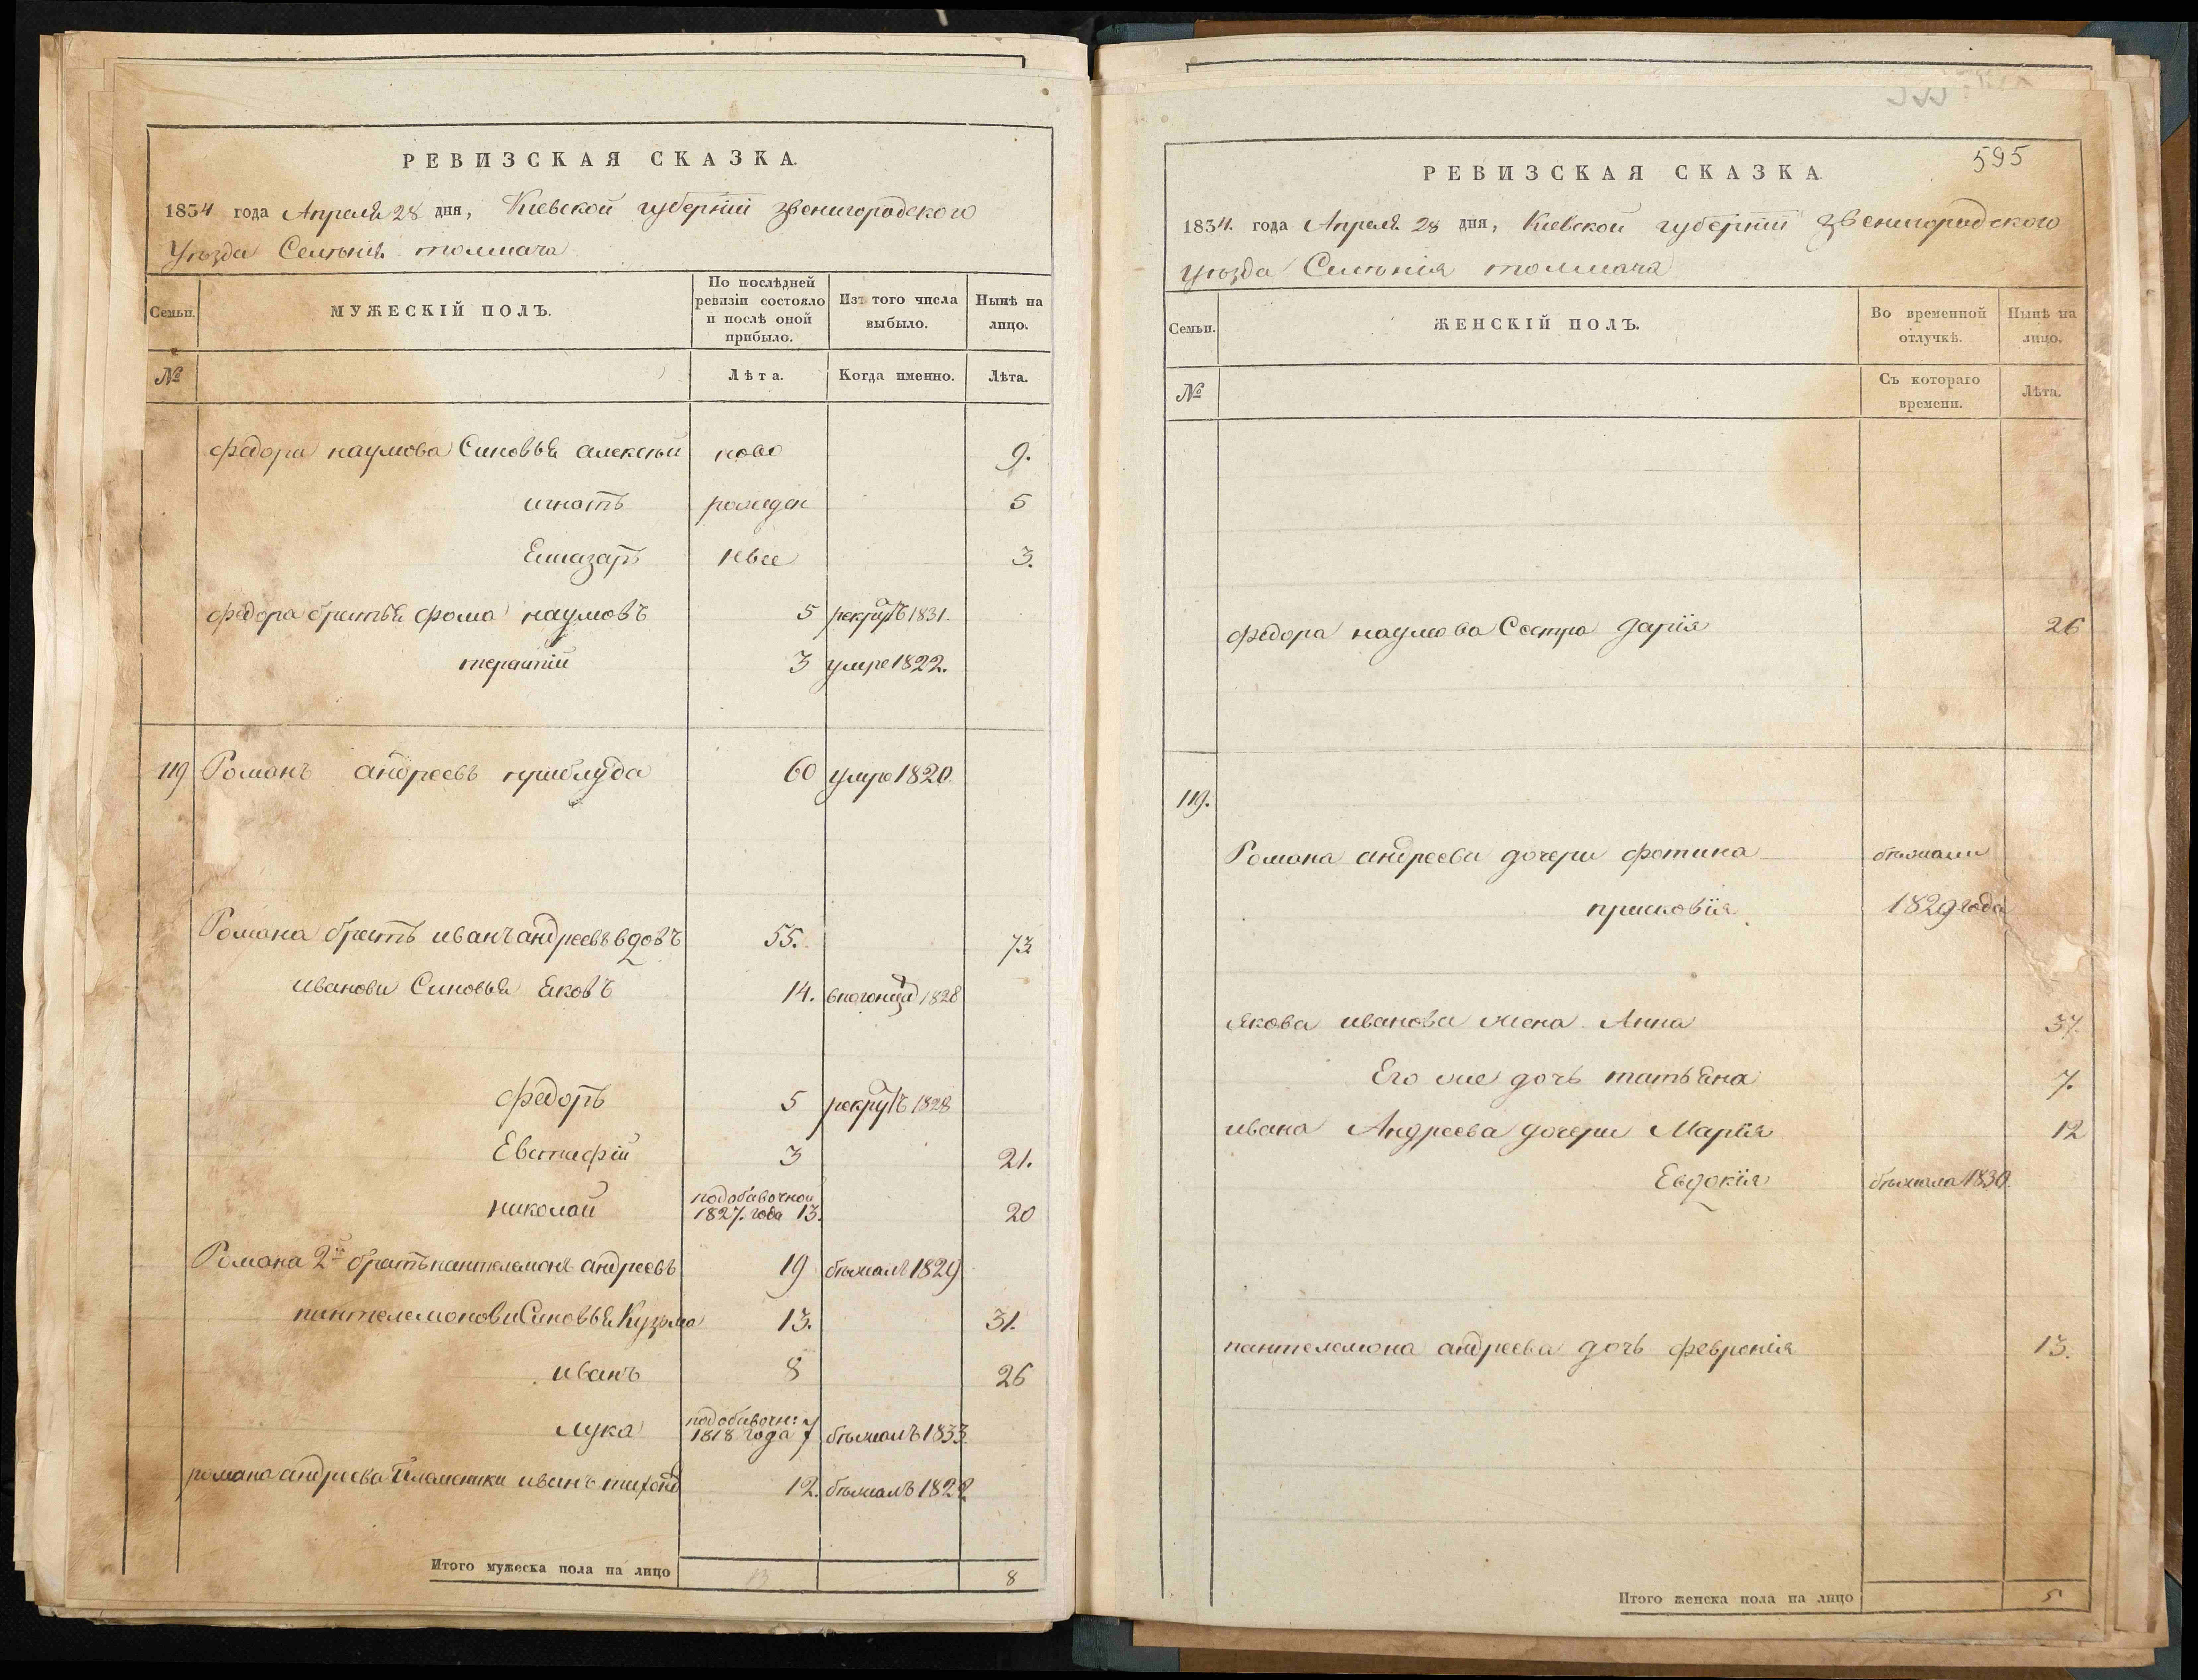 РЕВИЗСКАЯ СКАЗКА.
1834 года Апреля 28 дня, Киевской губернiи звенигородского
Уѣзда Селѣнiя толмача
Семьи.
МУЖЕСКІЙ ПОЛЪ.
По послѣдней ревизіи состояло и послѣ оной прибыло.
Изъ того числа выбыло.
Нынѣ на лицо.
№
Лѣта.
Когда именно.
Лѣта.
федора наумова Синовья алексѣй ново 9.
игнатъ рожден 5
Елиазаръ ные 3.
федора братья фома наумовъ 5 рекрутъ 1831.
терантiй 3 умре 1822.
119 Романъ андреевъ приблуда 60 умре 1820
Романа братъ иванъ андреевъ вдовъ 55. 73
иванови Синовья Яковъ 14. 1828
федоръ 5 рекрутъ 1828
Евстафiй 3 21.
николай подобавочной 1827. года 13. 20
Романа 2й братъ пантелемонъ андреевъ 19 бѣжалъ 1829
пантелемонови Синовья Кузьма 13. 31.
иванъ 8 26
лука подобавочн: 1818 года 7 бѣжалъ 1833
романа андреева Племеники иванъ тихоновъ 12. бѣжалъ 1822
Итого мужеска пола на лицо 13 8
595
РЕВИЗСКАЯ СКАЗКА
1834. года Апреля 28 дня, Киевской губернiи звенигородского
уѣзда Селѣнiя толмача
Семьи.
ЖЕНСКІЙ ПОЛЪ.
Во временной отлучкѣ.
Нынѣ на лицо.
№
Съ котораго времени.
Лѣта.
федора наумова Сестра дарiя 26
119.
Романа андреева дочери фотина бѣжали
присковiя 1829 года
якова иванова жена Анна 37.
Его же дочь татьяна 7.
ивана Андреева дочери Марiя 12
Евдокiя бѣжала 1830.
пантелемона андреева дочь февронiя 13.
Итого женска пола на лицо 5